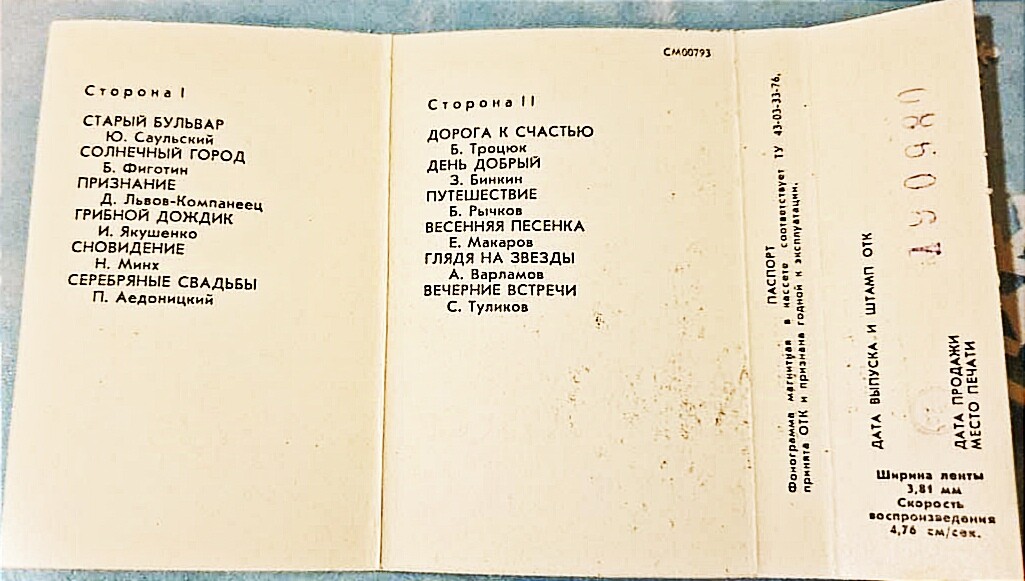 Сторона I
СТАРЫЙ БУЛЬВАР
Ю. Саульский
СОЛНЕЧНЫЙ ГОРОД
Б. Фиготин
ПРИЗНАНИЕ
Д. Львов-Компанеец
ГРИБНОЙ ДОЖДИК
И. Якушенко
СНОВИДЕНИЕ
Н. Минх
СЕРЕБРЯНЫЕ СВАДЬБЫ
П. Аедоницкий
СМ00793
Сторона II
ДОРОГА К СЧАСТЬЮ
Б. Троцюк
ДЕНЬ ДОБРЫЙ
З. Бинкин
ПУТЕШЕСТВИЕ
Б. Рычков
ВЕСЕННЯЯ ПЕСЕНКА
Е. Макаров
ГЛЯДЯ НА ЗВЕЗДЫ
А. Варламов
ВЕЧЕРНИЕ ВСТРЕЧИ
С. Туликов
ПАСПОРТ
Фонограмма магнитная в кассете соответствует ТУ 43-03-33-76,
принята ОТК и признана годной к эксплуатации.
ДАТА ВЫПУСКА И ШТАМП ОТК
ДАТА ПРОДАЖИ
МЕСТО ПЕЧАТИ
Ширина ленты
3,81 мм
Скорость
воспроизведения
4,76 см/сек.